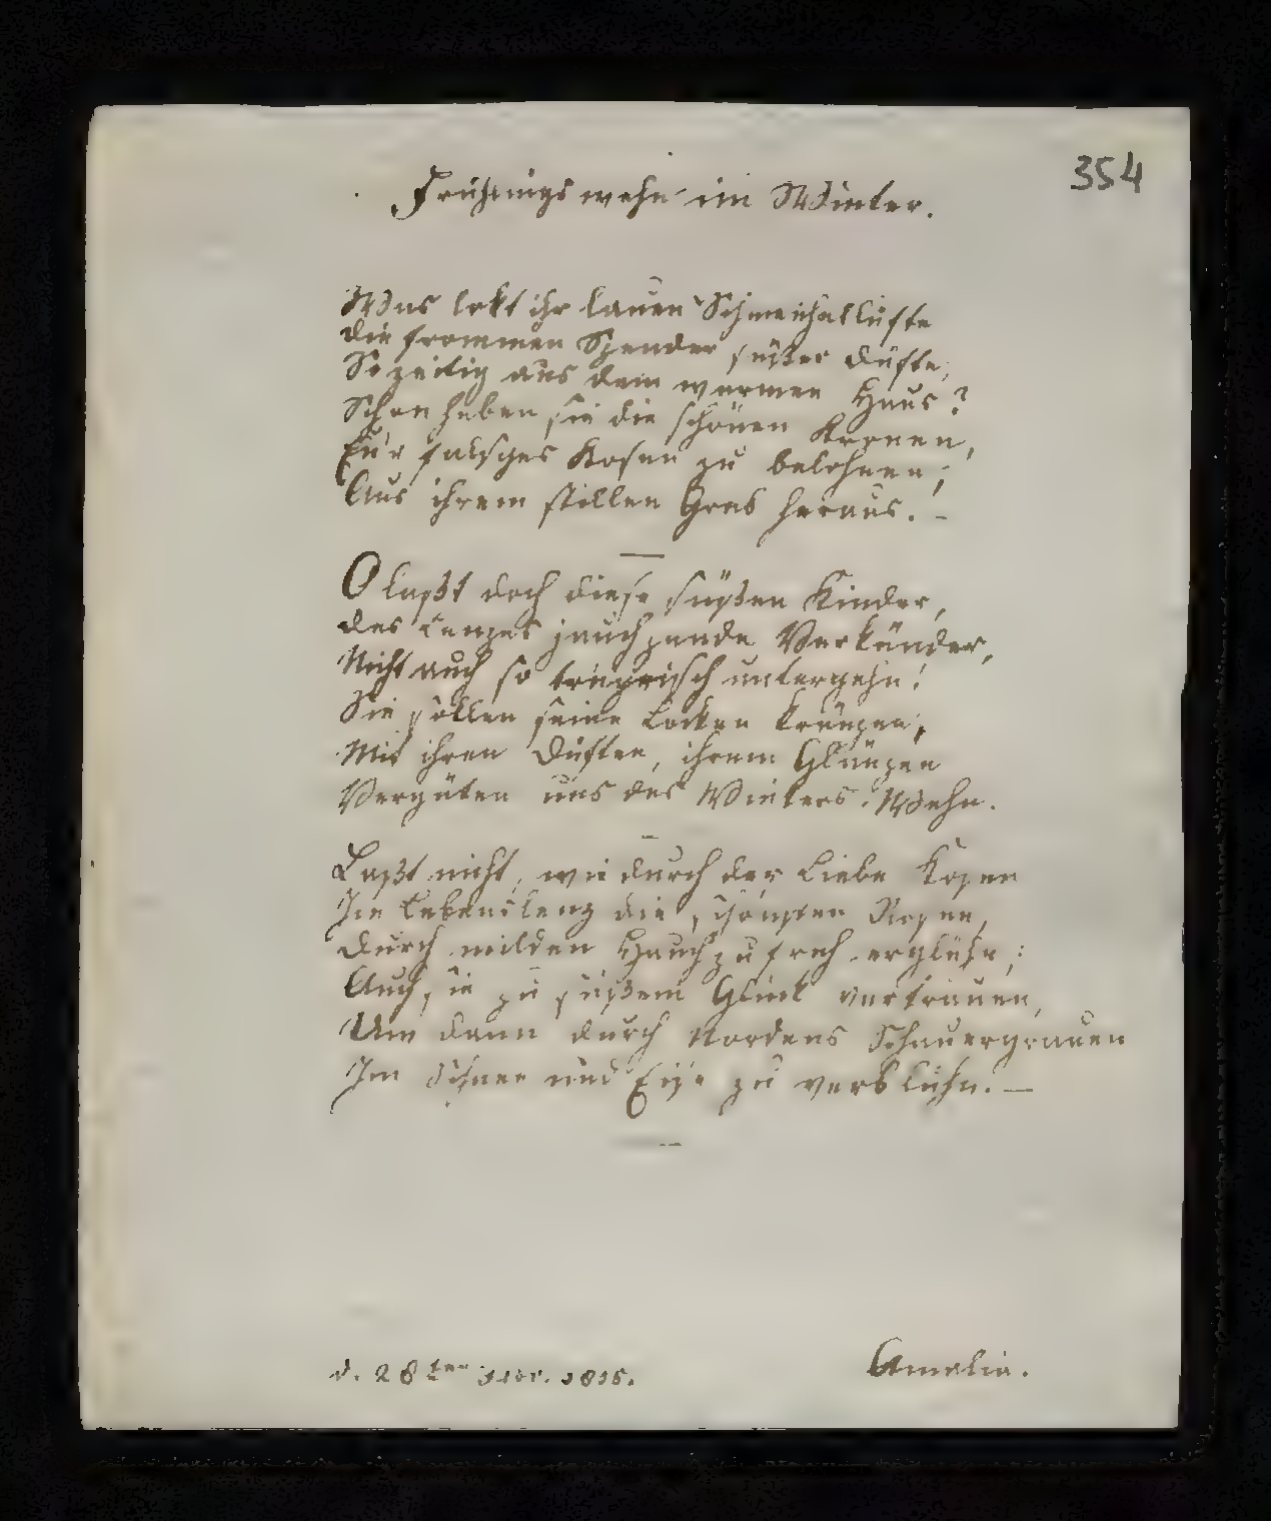 354
Frühlingswehn im Winter.
Was lokt ihr lauen Schmeichellüfte
Die frommen Spender süßer Düfte,
So zeitig aus dem warmen Haus?
Schon heben sie die schönen Kronen,
Eu'r falsches Kosen zu belohnen;
Aus ihrem stillen Grab heraus. –
O laßt doch diese süßen Kinder,
Des Lenzes jauchzende Verkünder,
Nicht auch so trügrisch untergehn!
Sie sollen seine Locken kränzen,
Mit ihren Düften, ihrem Glänzen
Vergüten uns des Winters Wehn.
Laßt nicht, wie durch der Liebe Kosen
Im Lebenslenz die schönsten Rosen,
Durch milden Hauch zu froh erglühn;
Auch sie zu süßem Glück vertrauen,
Um dann durch Nordens Schauergrauen
Im Schnee und Eise zu verblühn. –
d. 28ten
Amelia.